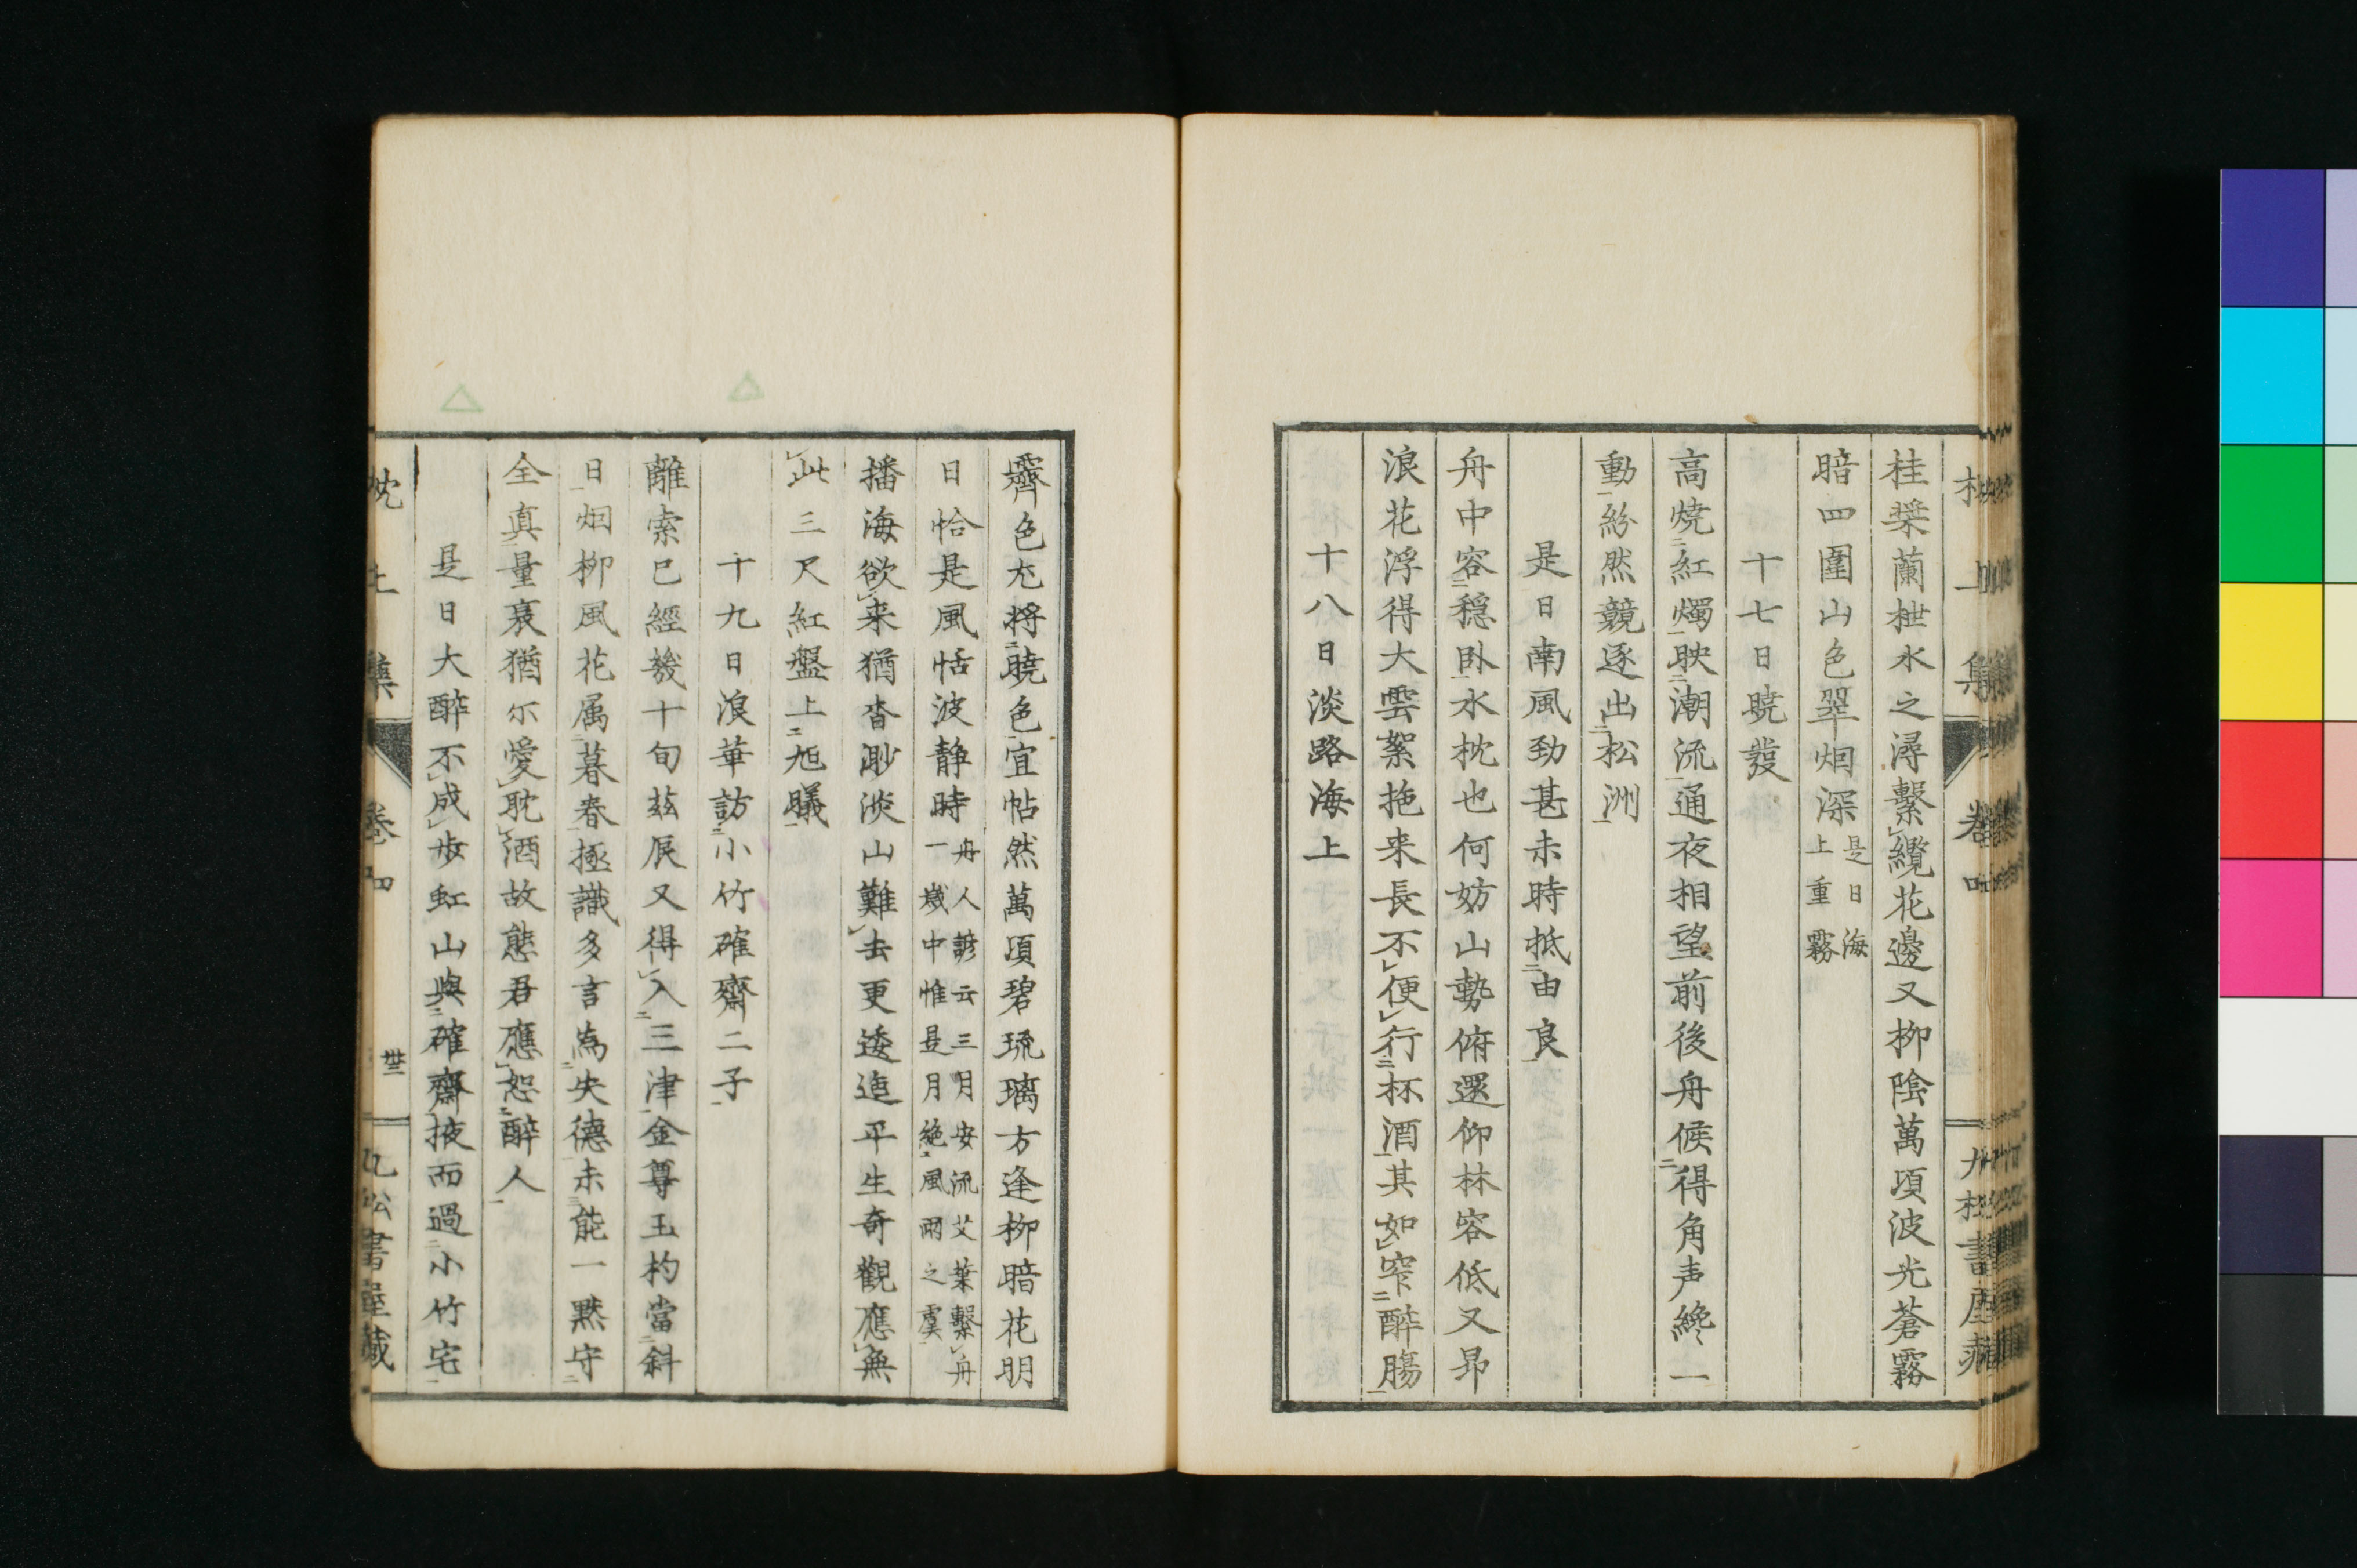 桂槳蘭枻水之潯繋纜花邊又柳陰萬頃波光蒼霧
暗四圍山色翠烟深是日海上重霧
十七日曉發
高燒紅燭映潮流通夜相望前後舟候得角声纔一
動紛然競逐出松洲
是日南風勁甚未時抵由良
舟中容穏臥水枕也何妨山勢俯還仰林容低又昻
浪花浮得大雲絮拖来長不便行杯酒其如窄醉腸
十八日淡路海上
霽色尤将曉色宜帖然萬頃碧琉璃方逢柳暗花明
日恰是風恬波静時舟人諺云三月安流艾葉繋舟一歳中惟是月絶風雨之虞
播海欲来猶杳渺淡山難去更逶迤平生奇觀應無
此三尺紅盤上旭曦
十九日浪華訪小竹確齋二子
離索已經幾十旬玆辰又得入三津金尊玉杓當斜
日烟柳風花属暮春極識多言為失德未能一黙守
全真量衰猶尓愛耽酒故態君應恕醉人
是日大醉不成歩虹山與確齋掖而過小竹宅
枕上集
卷四
卅三
九松書屋藏